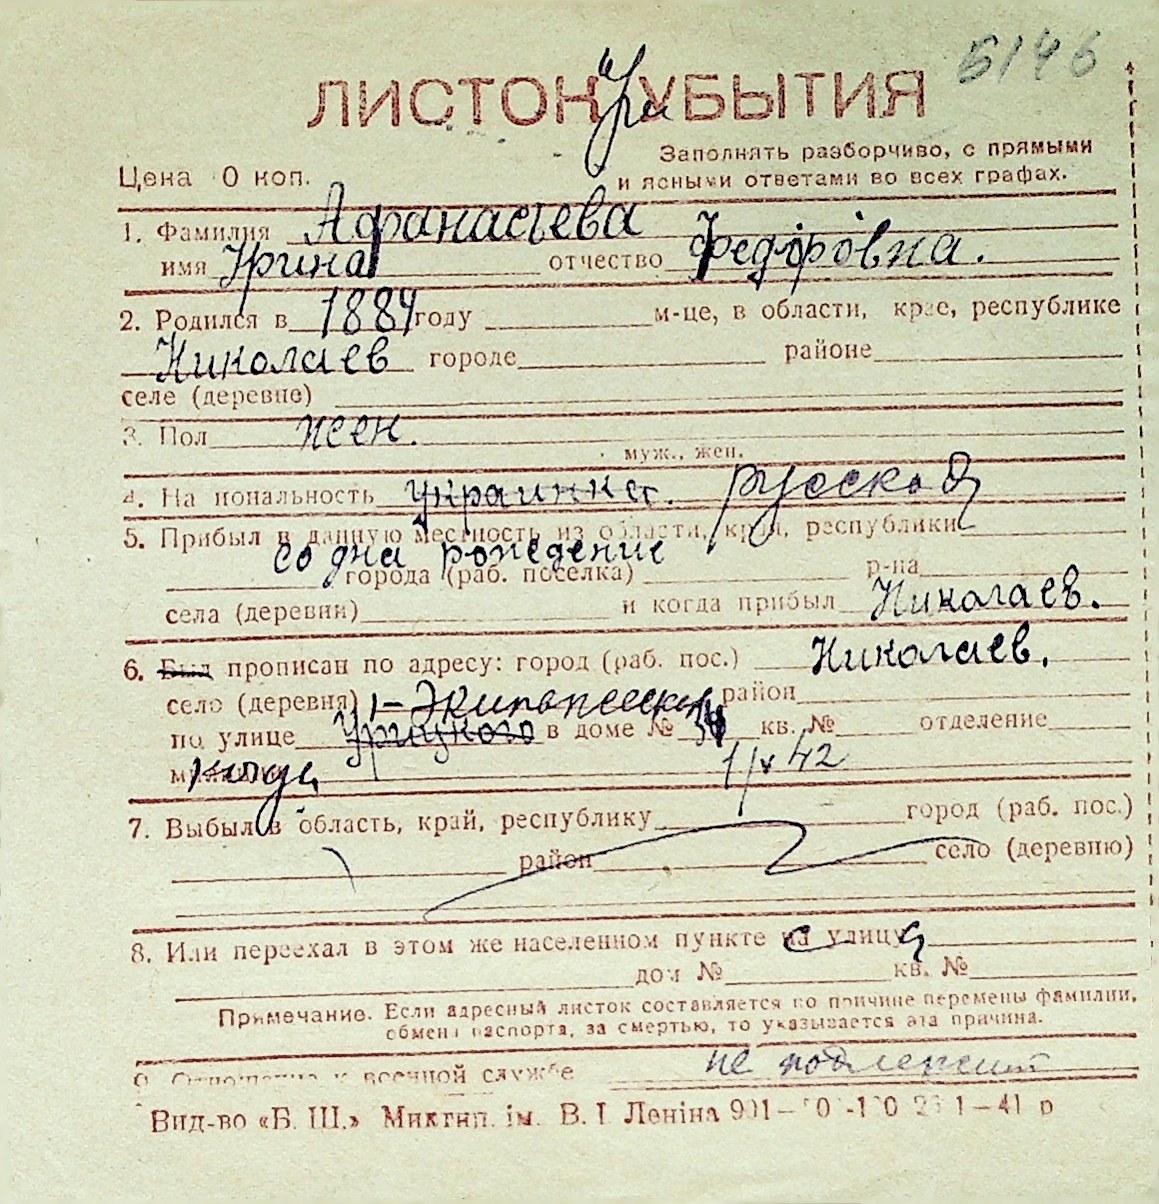 5146
ЛИСТОК УБЫТИЯ
Заполнять разборчиво, с прямыми
Цена 0 коп. и ясными ответами во всех графах.
1. Фамилия Афанасьева
имя Ирина отчество Федоровна.
2. Родился в 1884 году м-це, в области, крае, республике
Николаев городе районе
селе (деревне)
3. Пол жен.
муж., жен.
4. На иональность украинка. русская
5. Прибыл в данную местность из области, края, республики
со дна рождение
города (раб. поселка) р-на
села (деревни) и когда прибыл Николаев.
6. Был прописан по адресу: город (раб. пос.) Николаев.
село (деревня) 1-Экипажеская район
по улице Урицкого в доме № 34 кв. № отделение
1/v 42
7. Выбыл в область, край, республику город (раб. пос.)
район село (деревню)
8. Или переехал в этом же населенном пункте на улицу
дом № кв. №
Примечание. Если адресный листок составляется по причине перемены фамилии,
обмена паспорта, за смертью, то указывается эта причина.
9. Отношение к военной службе не подлежит
Вид-во «Б. Ш.» Микгип. ім. В. І Леніна 1–41 р